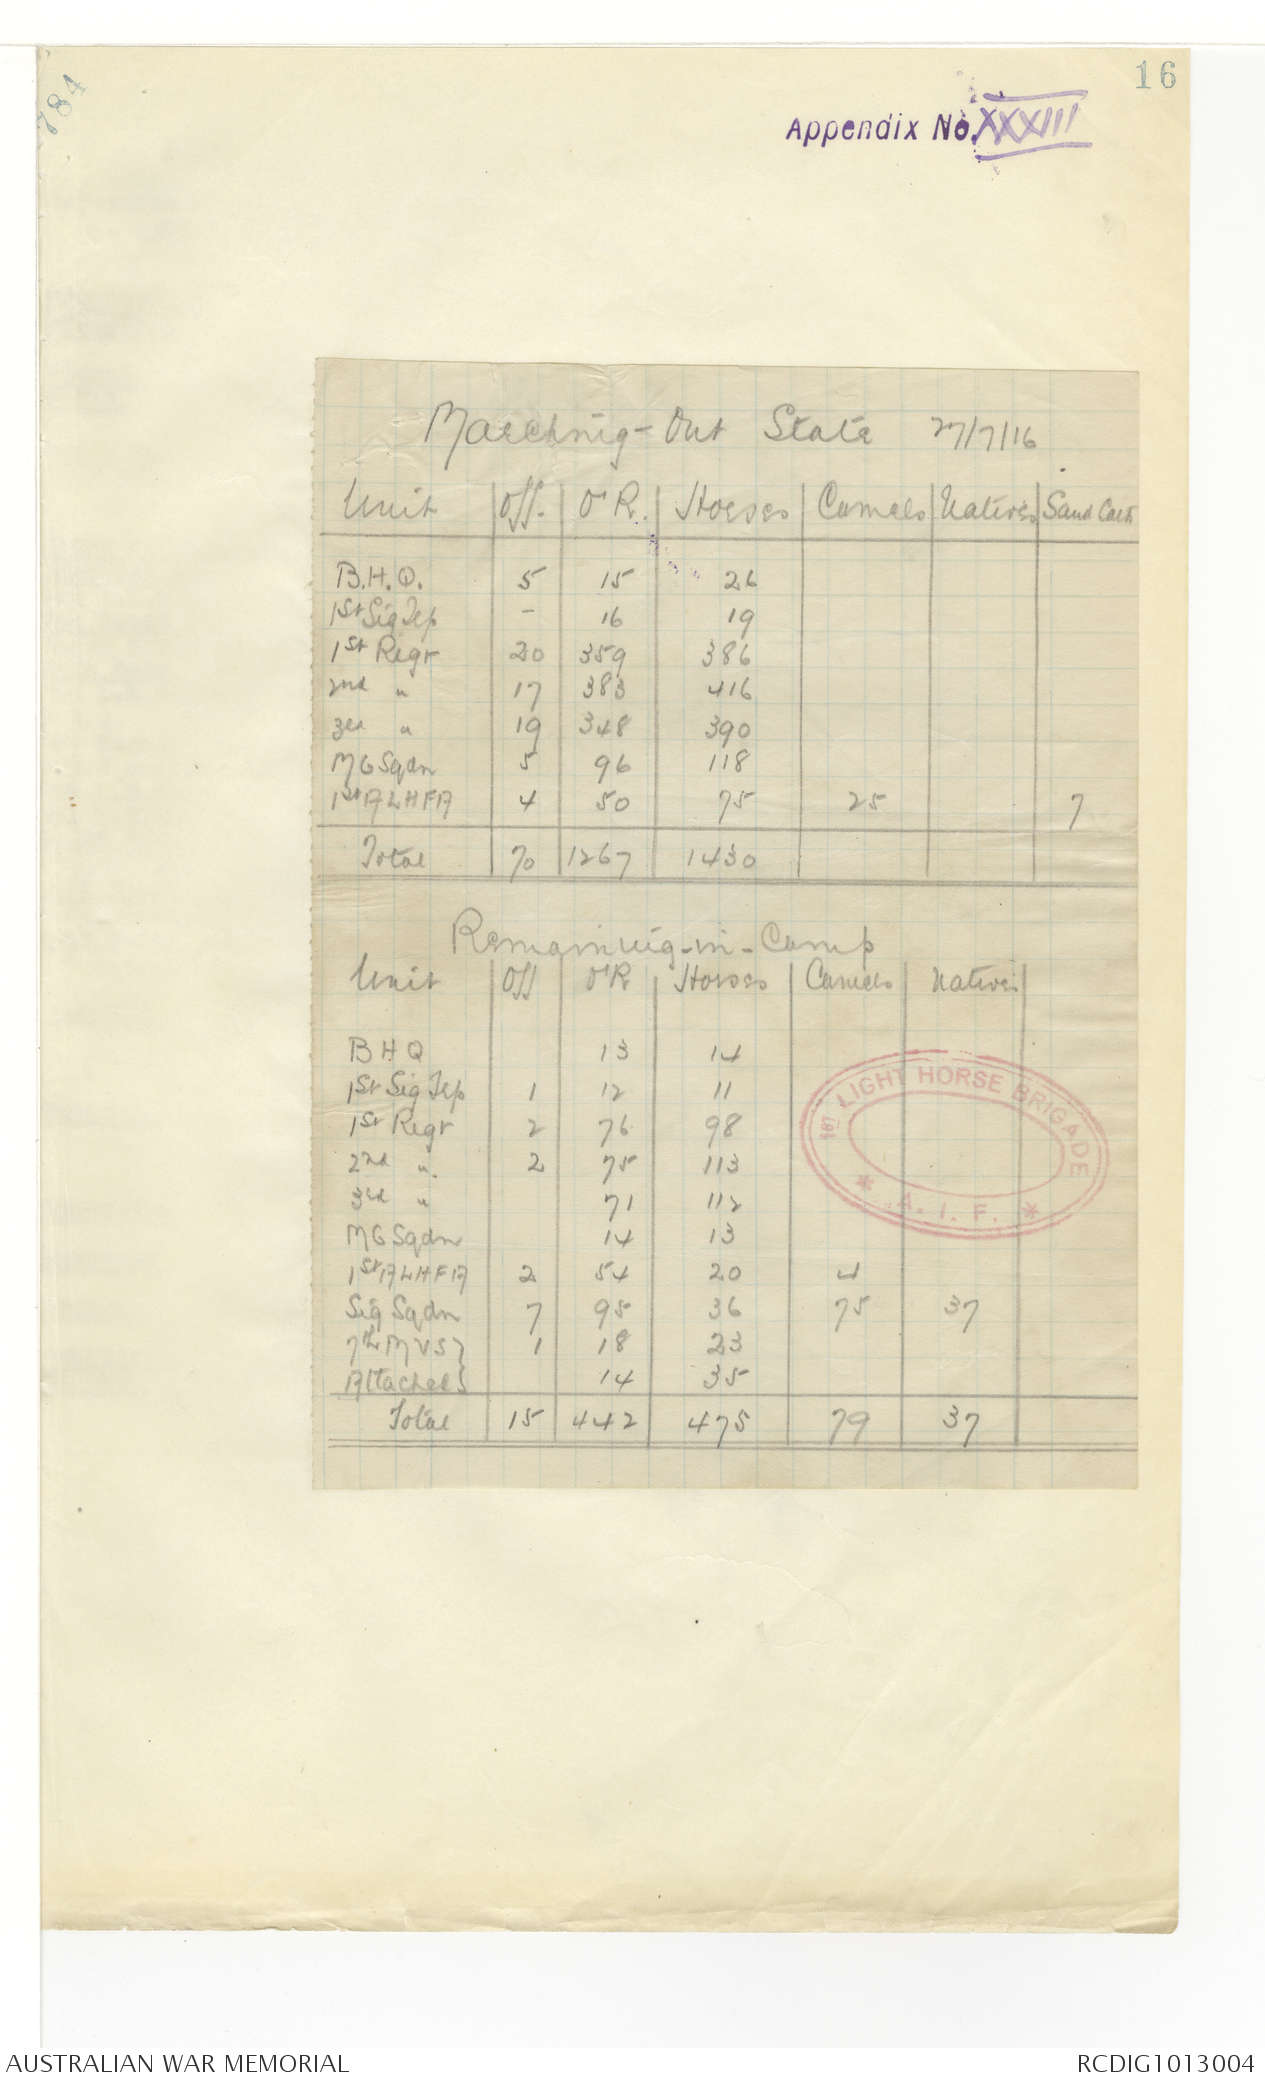 16
784
Appendix No. XXXIII
Marching-Out State 27/7/16
Unit Off. O'R. Horses Camels Natives Sand Carts
B.H.Q. 5 15 26
1st Sig Tep - 16 19
1st Regt 20 359 386
2nd " 17 383 416
3rd " 19 348 390
MG Sqdn 5 96 118
1st ALHFA 4 50 75 25 7
Total 70 1267 1430
Remaining-in-Camp
Unit Off O'R Horses Camels Natives
BHQ 13 14
1st Sig Tep 1 12 11
1st Regt 2 76 98
2nd " 2 75 113
3rd " 71 112
MG Sqdn 14 13
1st ALHFA 2 54 20 4
Sig Sqdn 7 95 36 75 37
7th MVS 1 18 23
Attached 14 35
Total 15 442 475 79 37
1ST LIGHT HORSE BRIGADE
* A. I. F. *
AUSTRALIAN WAR MEMORIAL
RCDIG1013004